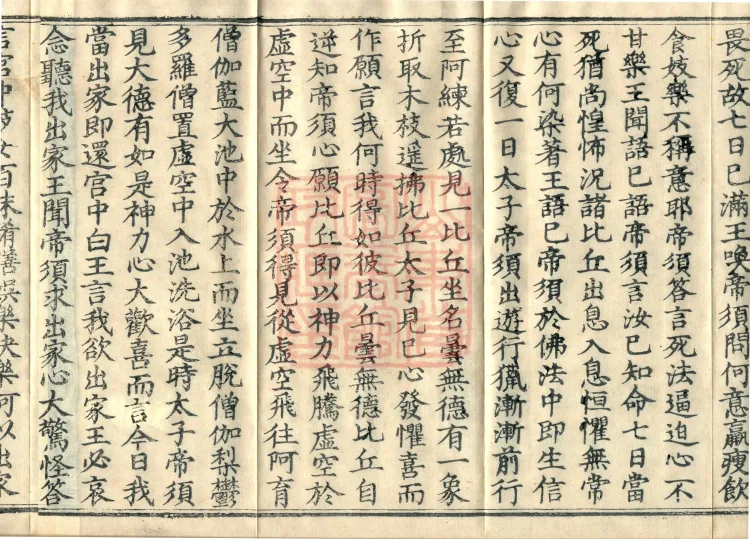 畏死故七日已滿王喚帝須問何意羸瘦飲
食妓樂不稱意耶帝須答言死法逼迫心不
甘樂王聞語已語帝須言汝已知命七日當
死猶尚惶怖況諸比丘出息入息恒懼無常
心有何染著王語已帝須於佛法中即生信
心又復一日太子帝須出遊行獵漸漸前行
至阿練若處見一比丘坐名曇無德有一象
折取木枝遥拂比丘太子見已心發懼喜而
作願言我何時得如彼比丘曇無德比丘自
逆知帝須心願比丘即以神力飛騰虛空於
虛空中而坐令帝須得見從虛空飛往阿育
僧伽藍大池中於水上而坐立脫僧伽梨鬱
多羅僧置虛空中入池洗浴是時太子帝須
見大德有如是神力心大歡喜而言今日我
當出家即還宮中白王言我欲出家王必哀
念聽我出家王聞帝須求出家心大驚怪答
言宮中妓女百味餚饍娛樂快樂何以出家